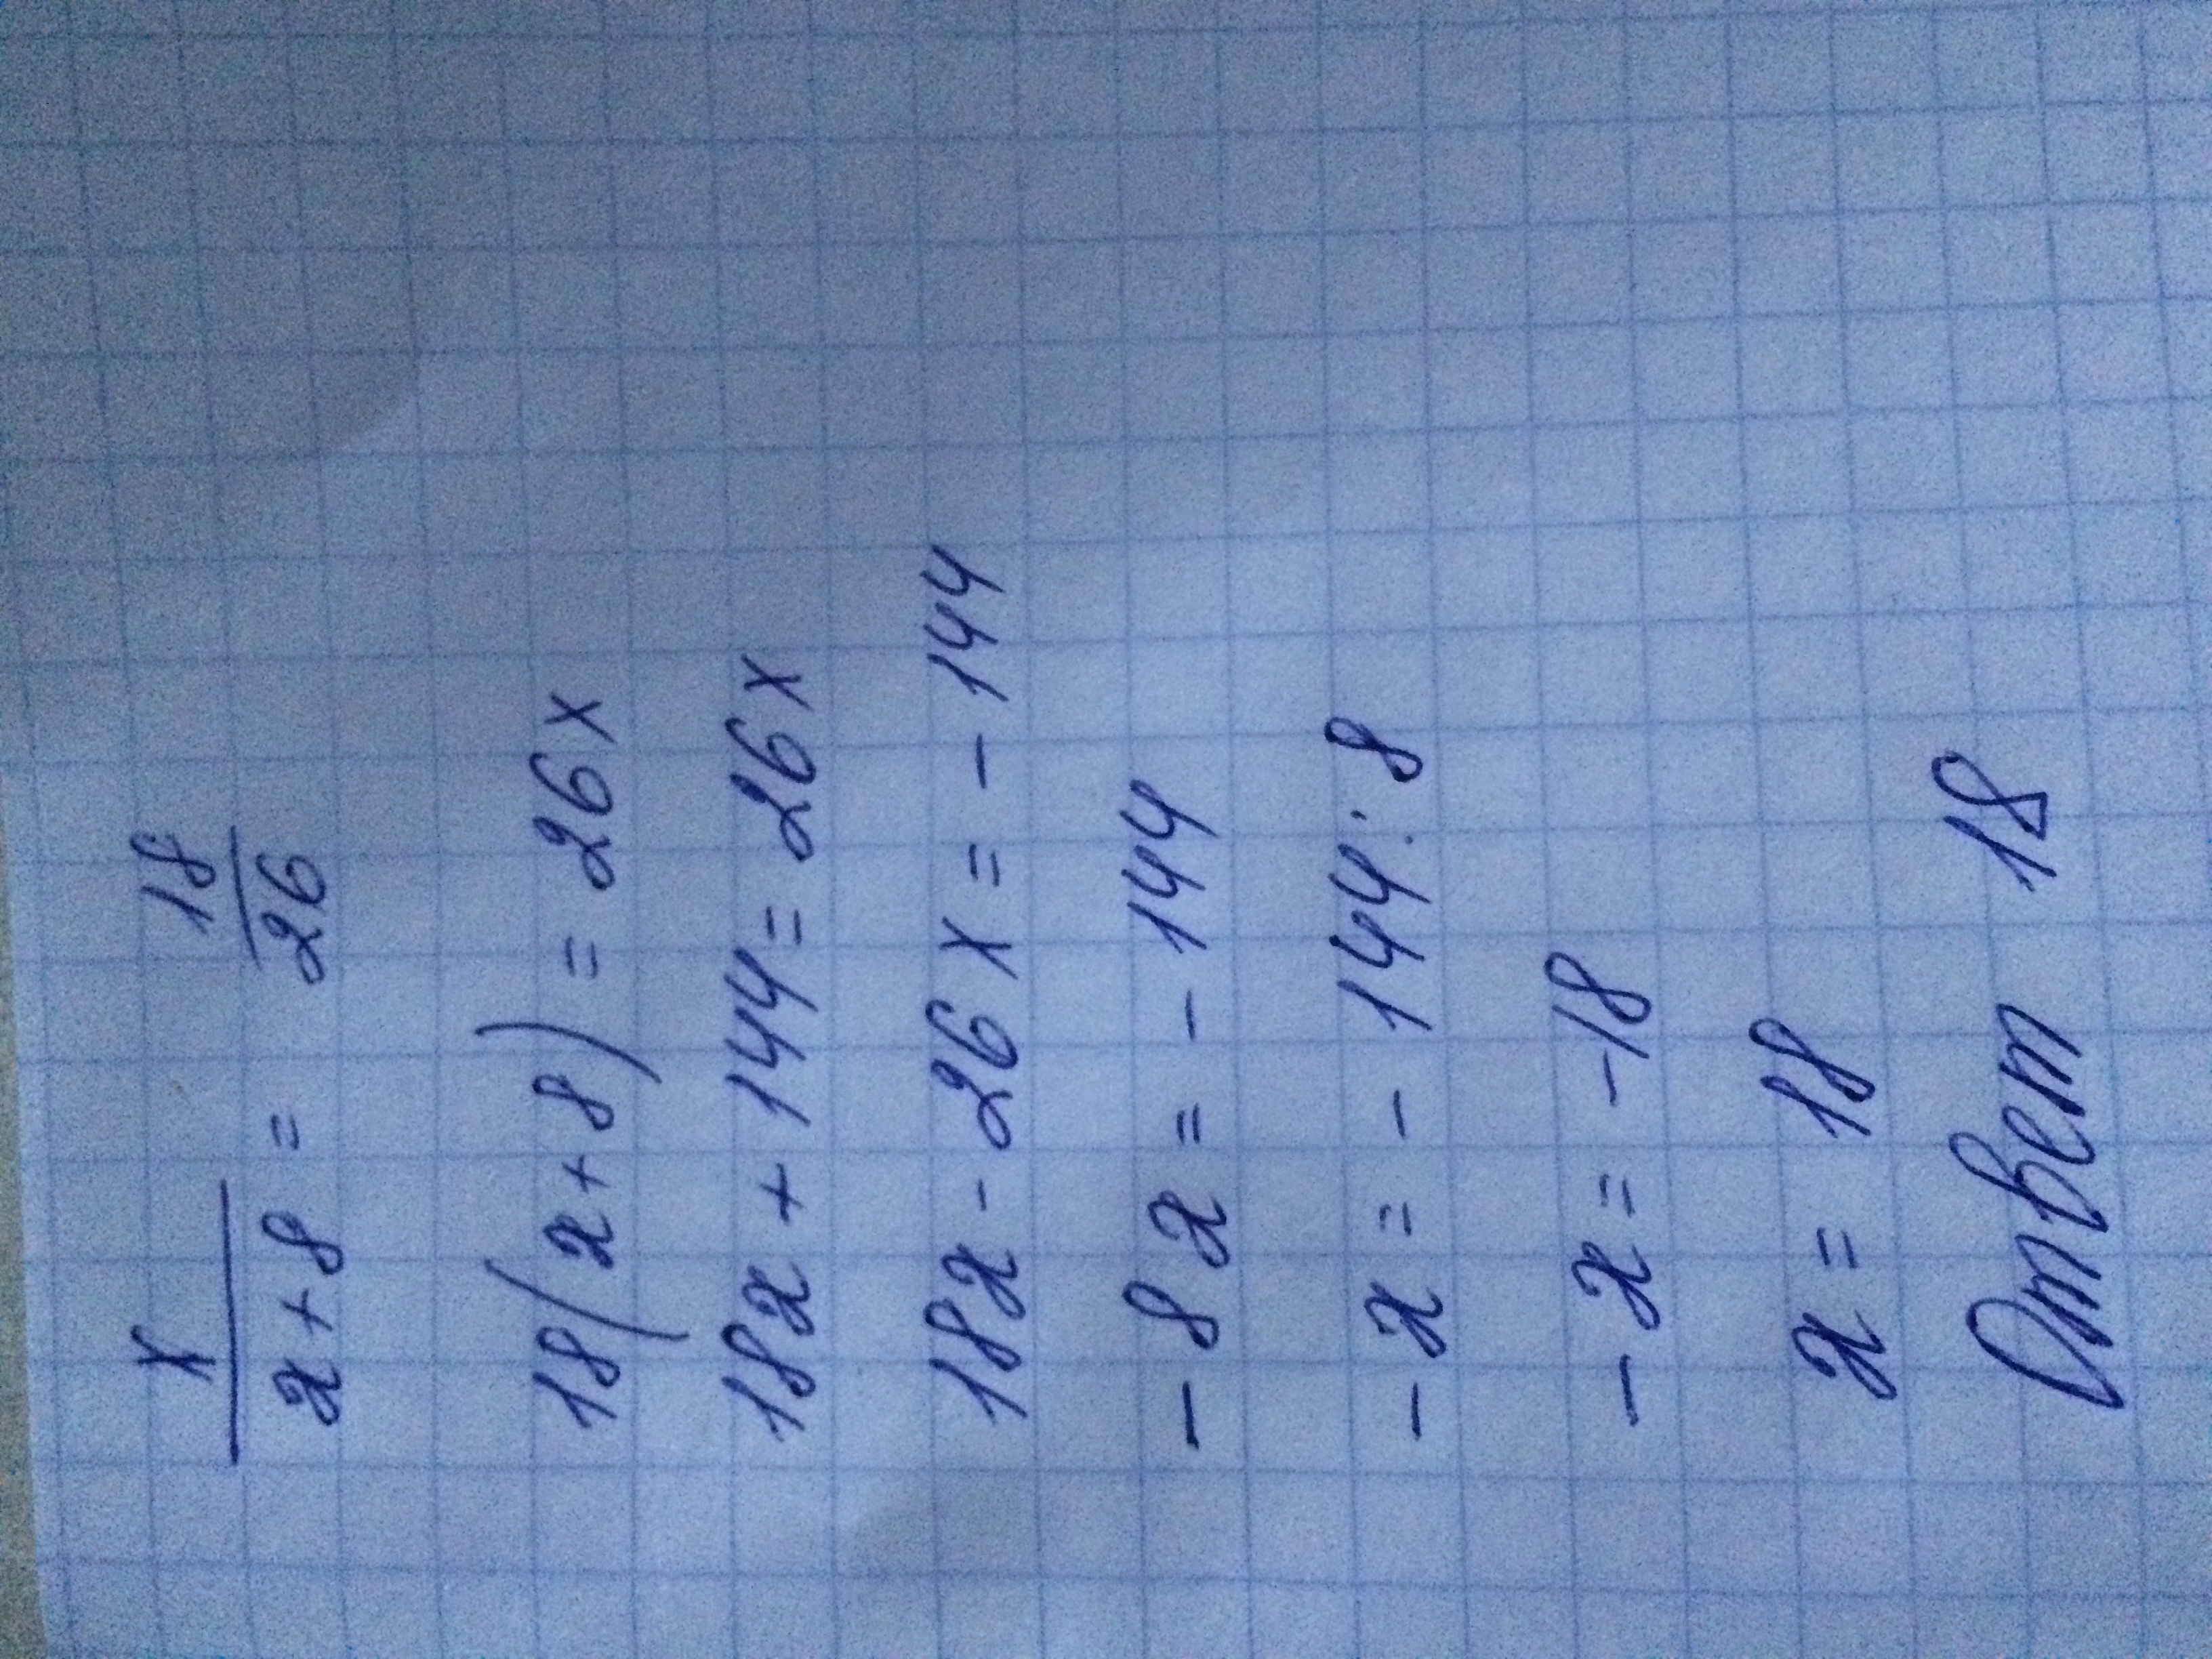 x/x+8 = 18/26
18(x+8) = 26x
18x + 144 = 26x
18x - 26x = - 144
- 8x = - 144
- x = - 144 : 8
- x = -18
x = 18
Ответ 18